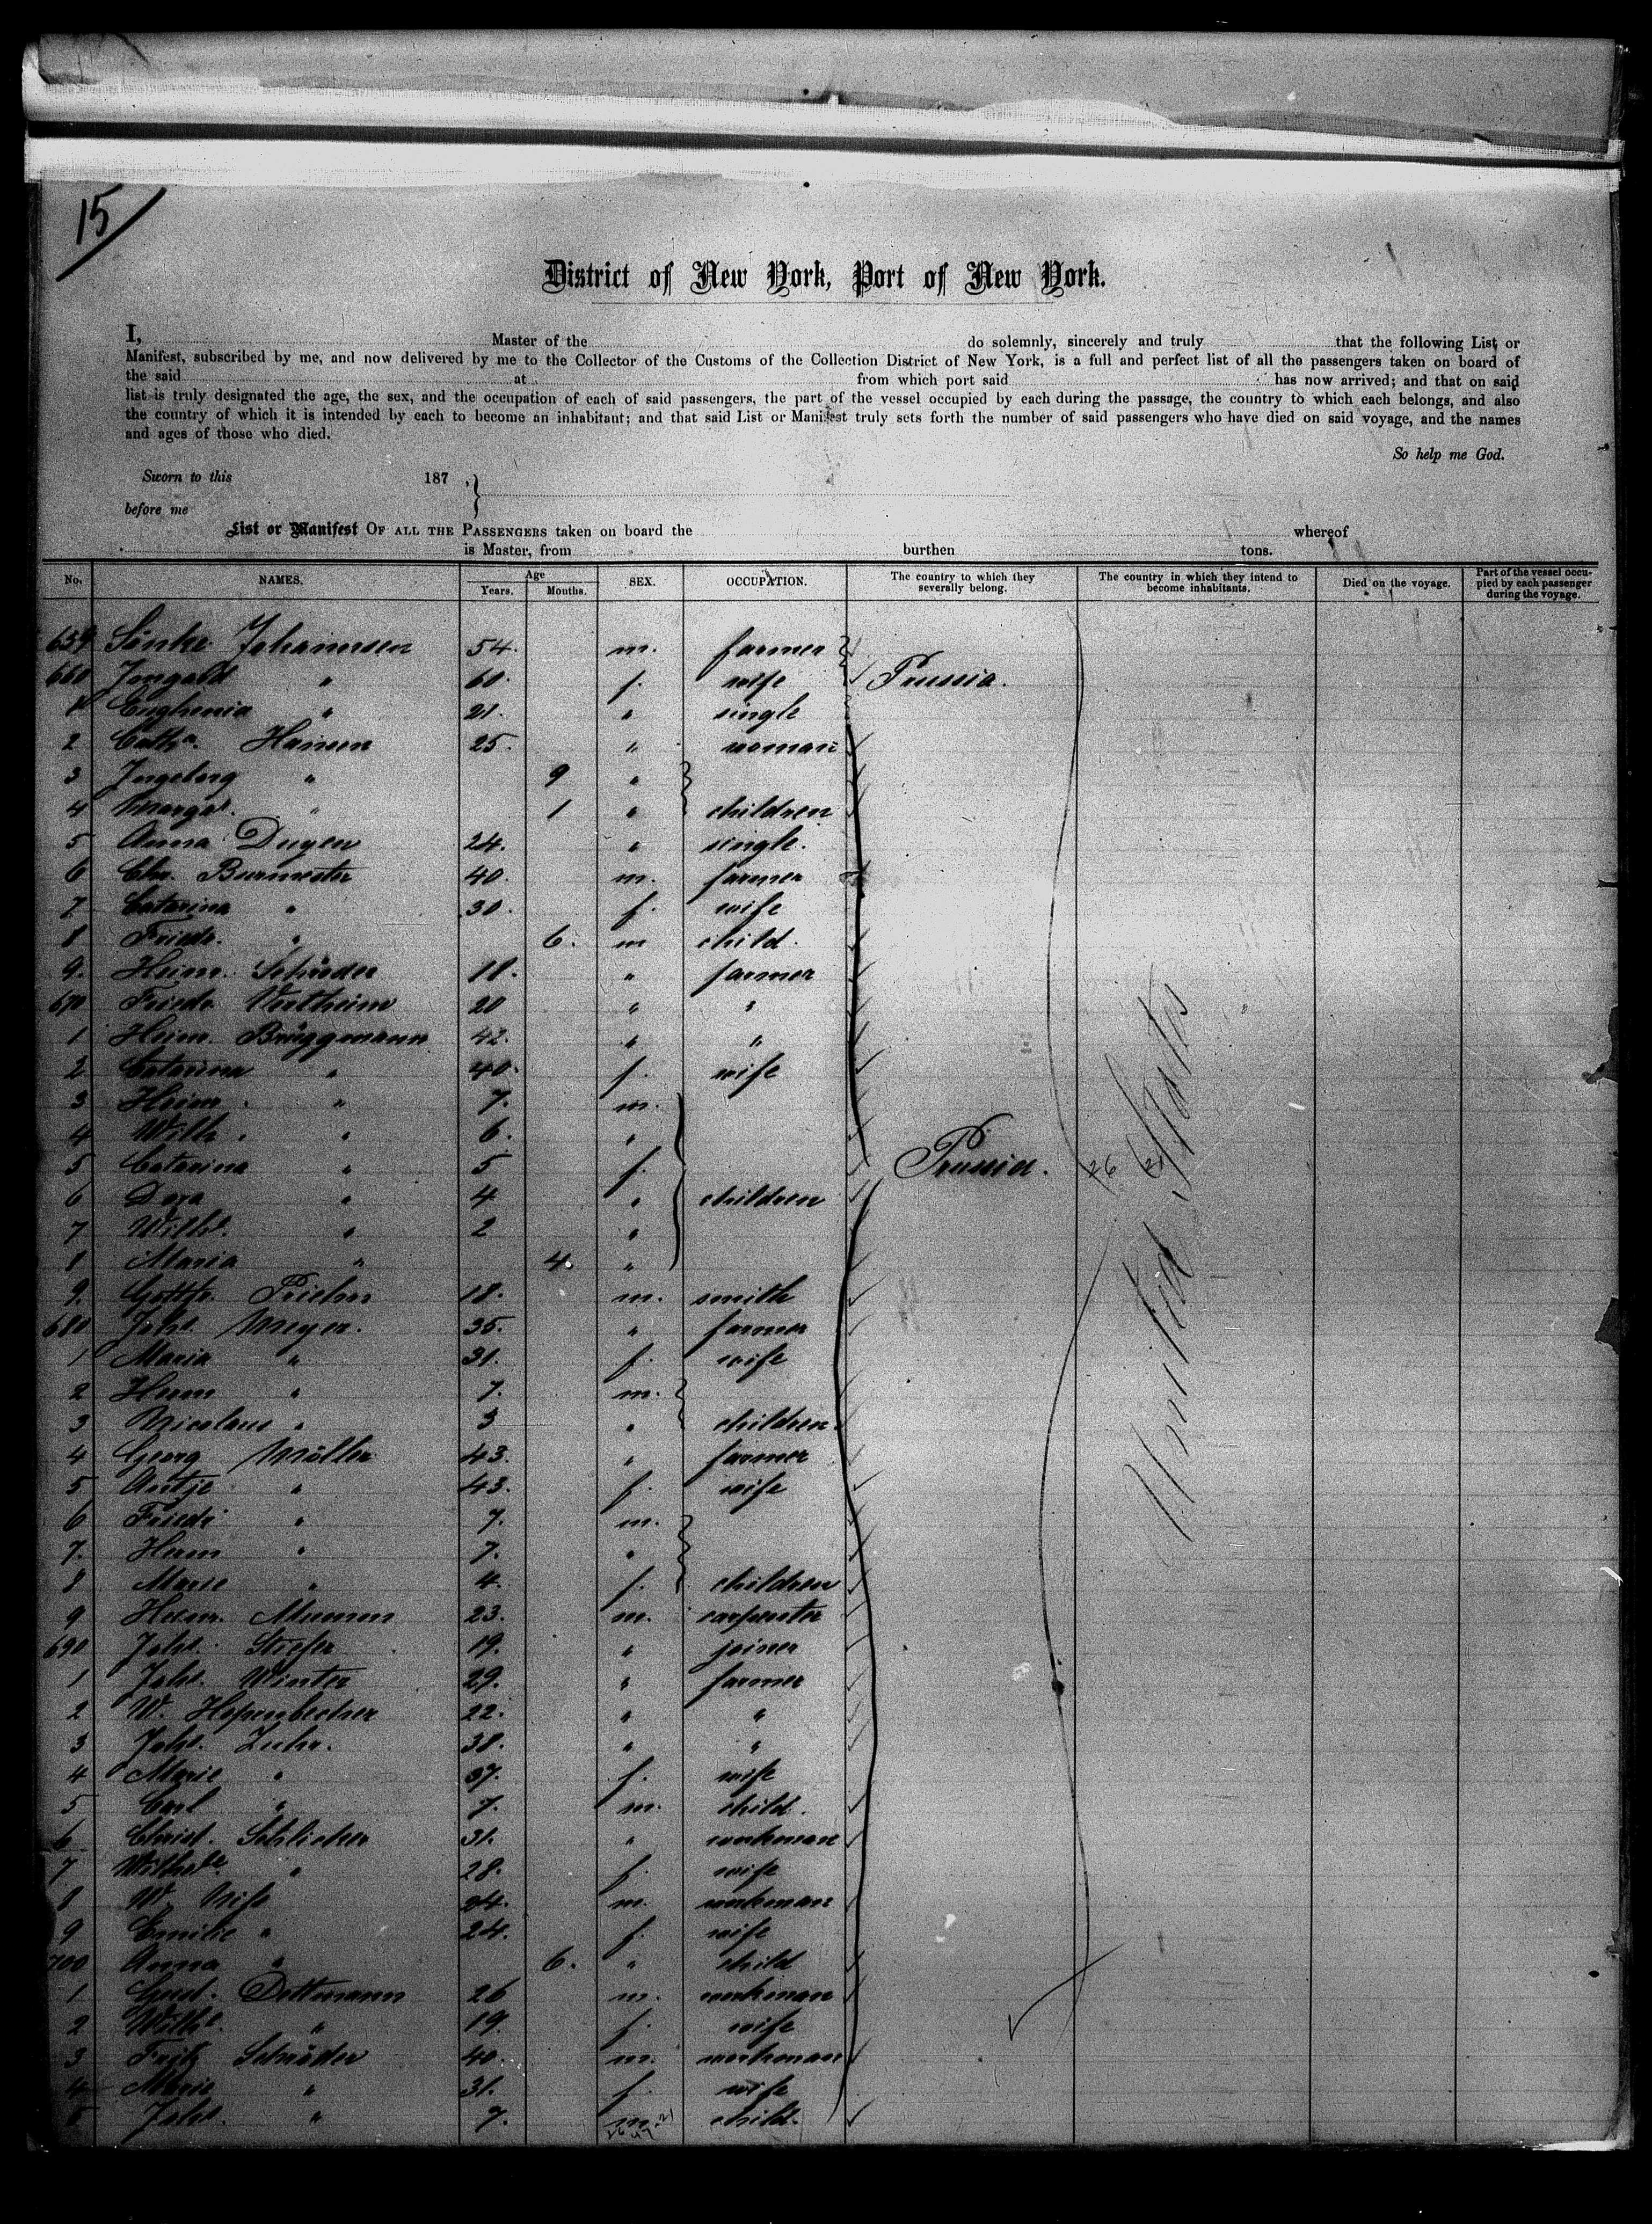 15
District of New York, Port of New York.
I, Master of the do solemnly, sincerely and truly that the following List or
Manifest, subscribed by me, and now delivered by me to the Collector of the Customs of the Collection District of New York, is a full and perfect list of all the passengers taken on board of
the said at from which port said has now arrived; and that on said
list is truly designated the age, the sex, and the occupation of each of said passengers, the part of the vessel occupied by each during the passage, the country to which each belongs, and also
the country of which it is intended by each to become an inhabitant; and that said List or Manifest truly sets forth the number of said passengers who have died on said voyage, and the names
and ages of those who died.
So help me God.
Sworn to this 187 ,
before me
List or Manifest OF ALL THE PASSENGERS taken on board the whereof
is Master, from burthen tons.
No. NAMES. Age Years. Months. SEX. OCCUPATION. The country to which they severally belong. The country in which they intend to become inhabitants. Died on the voyage. Part of the vessel occupied by each passenger during the voyage.
659 Sönke Johannsen 54. m. farmer
660 " 60. f. wife Prussia.
1 " 21. " single
2 Cath.a Hansen 25. " woman
3 Ingeborg " 9 "
4 Margar. " 1 " children
5 Anna 24. " single.
6 Chr. Burmester 40. m. farmer
7 Catarina " 30. f. wife
8 Friedr. " 6. m child.
9. Heinr. Schröder 18. " farmer
670 Friedr. Wertheim 20 " "
1 Heinr. Brüggmann 42. " "
2 Catarina " 40. f. wife
3 Heinr. " 7. m.
4 Wilh. " 6. "
5 Catarina " 5 f. Prussia. 26 21
6 Dora " 4 " children
7 Wilh. " 2 "
8 Maria " 4. "
9. 18. m. smith
680 Joh. Meyer. 35. " farmer
1 Maria " 31. f. wife
2 Herm " 7. m.
3 Nicolaus " 3 " children.
4 Georg Möller 43. " farmer
5 Antje " 43. f. wife
6 Friedr " 7. m.
7. Herm " 7. "
8 Marie " 4. f. children
9 Herm. 23. m. carpenter
690 Joh. 19. " joiner
1 Joh. Winter 29. " farmer
2 W. 22. " "
3 Joh. 38. " "
4 Marie " 37. f. wife
5 Carl " 7. m. child.
6 Christ. Schlicker 31. " workman
7 " 28. f. wife
8 W. 24. m. workman
9 Emilie " 24. f. wife
700 Anna " 6. " child
1 Dettmann 26 m. workman
2 Wilh. " 19. f. wife
3 Fritz Schröder 40. m. workman
4 Marie " 31. f. wife
5 Joh. " 7. m. child.
United States